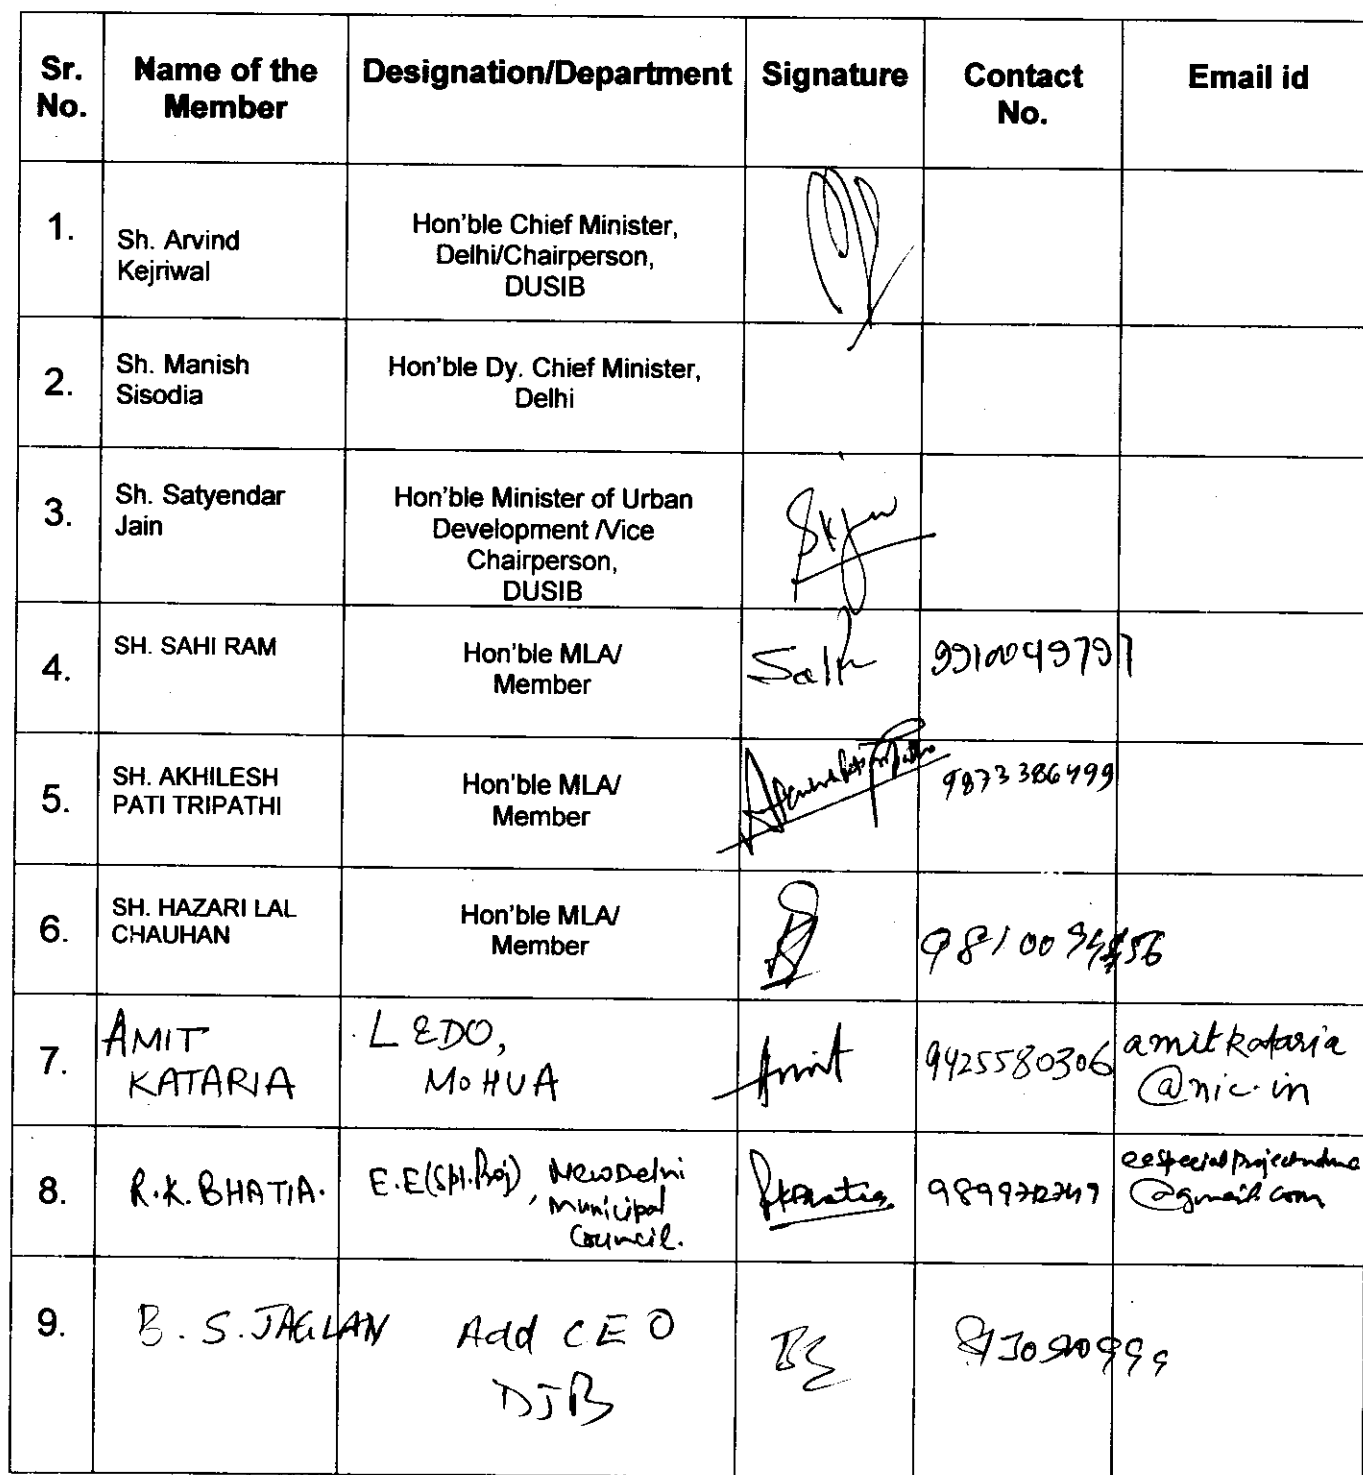 Sr. No. Name of the Member Designation/Department Signature Contact No. Email id
1. Sh. Arvind Kejriwal Hon'ble Chief Minister, Delhi/Chairperson, DUSIB
2. Sh. Manish Sisodia Hon'ble Dy. Chief Minister, Delhi
3. Sh. Satyendar Jain Hon'ble Minister of Urban Development /Vice Chairperson, DUSIB
4. SH. SAHI RAM Hon'ble MLA/ Member 9910049797
5. SH. AKHILESH PATI TRIPATHI Hon'ble MLA/ Member 9873386499
6. SH. HAZARI LAL CHAUHAN Hon'ble MLA/ Member
7. AMIT KATARIA L&DO, MoHUA Amit 9425580306 amitkataria @nic.in
8. R.K. BHATIA. E.E(Spl.Proj), New Delhi Municipal Council. RKBhatia @gmail.com
9. B. S. JAGLAN Add CEO DJB